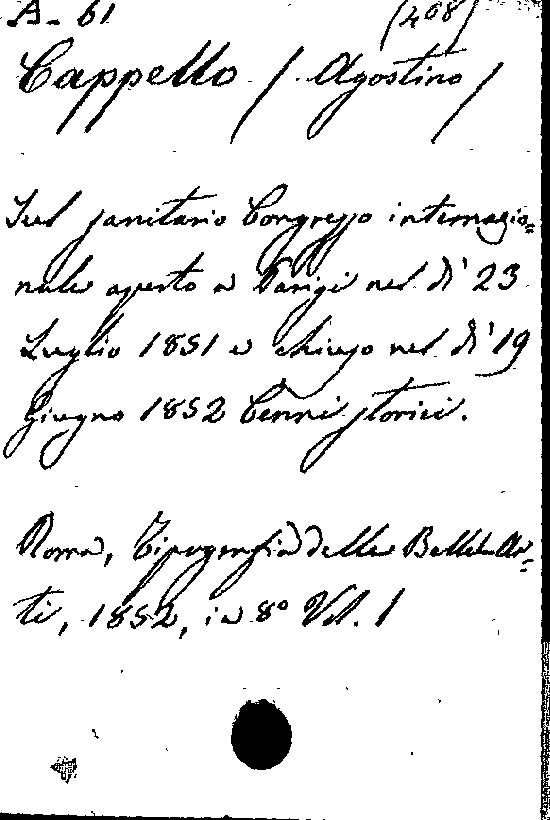 A- 61 (408)
Cappello / Agostino /
Sul sanitario Congresso internazio=
nale aperto a Parigi nel dì 23
Luglio 1851 e chiuso nel dì 19
Giugno 1852 Cenni storici.
Roma, Tipografia delle Belle Ar=
ti, 1852, in 8° Vol. 1